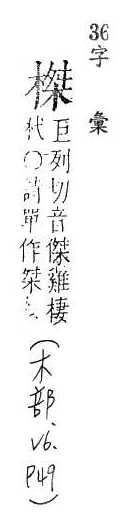 36字彙
榤
巨列切音傑雞棲
杙〇詩單作桀
(木部 V6. P49)